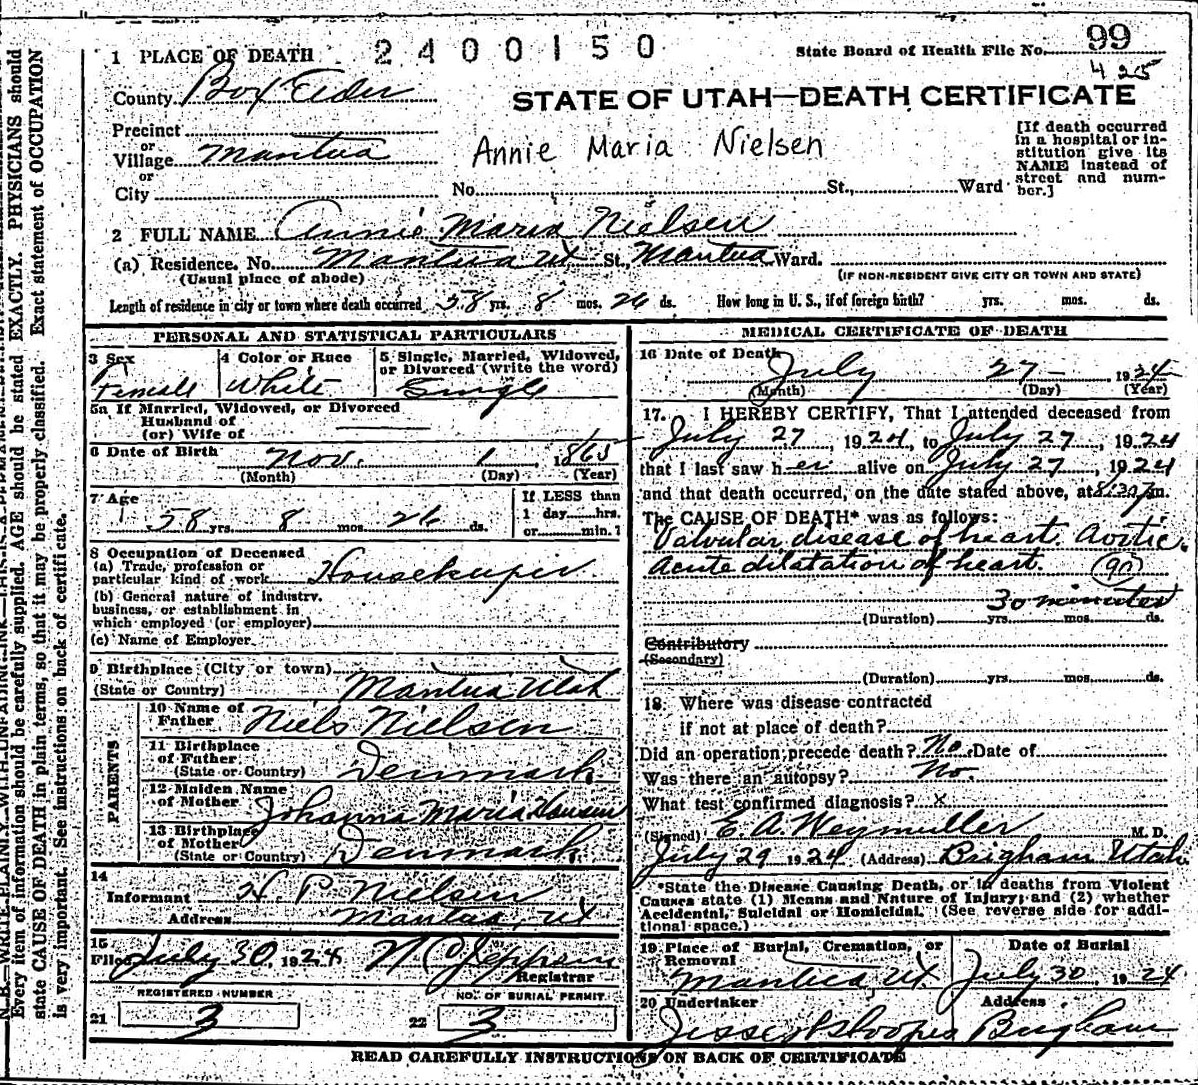 1 PLACE OF DEATH 2400150 State Board of Health File No. 99
425
County Box Elder
STATE OF UTAH—DEATH CERTIFICATE
Precinct
or
Village Mantua
or
City
Annie Maria Nielsen
[If death occurred in a hospital or institution give its NAME instead of street and number.]
No. St., Ward
2 FULL NAME Annie Maria Nielsen
(a) Residence. No. Mantua Ut St., Mantua Ward.
(Usual place of abode) (IF NON-RESIDENT GIVE CITY OR TOWN AND STATE)
Length of residence in city or town where death occurred 58 yrs. 8 mos. 26 ds. How long in U. S., if of foreign birth? yrs. mos. ds.
PERSONAL AND STATISTICAL PARTICULARS
3 Sex Female
4 Color or Race White
5 Single, Married, Widowed, or Divorced (write the word) Single
5a If Married, Widowed, or Divorced
Husband of
(or) Wife of
6 Date of Birth Nov. 1, 1865
(Month) (Day) (Year)
7 Age 58 yrs. 8 mos. 26 ds.
If LESS than
1 day....hrs.
or....min.?
8 Occupation of Deceased
(a) Trade, profession or
particular kind of work Housekeeper
(b) General nature of industry,
business, or establishment in
which employed (or employer)
(c) Name of Employer
9 Birthplace (City or town)
(State or Country) Mantua Utah
PARENTS
10 Name of
Father Niels Nielsen
11 Birthplace
of Father
(State or Country) Denmark
12 Maiden Name
of Mother Johanna Maria Hansen
13 Birthplace
of Mother
(State or Country) Denmark
14
Informant H. P. Nielsen
Address Mantua, Ut
15
Filed July 30, 1924
Registrar
REGISTERED NUMBER
21 3
NO. OF BURIAL PERMIT
22 3
MEDICAL CERTIFICATE OF DEATH
16 Date of Death July 27 1924
(Month) (Day) (Year)
17. I HEREBY CERTIFY, That I attended deceased from
July 27, 1924, to July 27, 1924
that I last saw her alive on July 27, 1924
and that death occurred, on the date stated above, at 8:30 m.
The CAUSE OF DEATH* was as follows:
Valvular disease of heart. Aortic.
Acute dilatation of heart. 90
30 minutes
(Duration) yrs. mos. ds.
Contributory
(Secondary)
(Duration) yrs. mos. ds.
18. Where was disease contracted
if not at place of death?
Did an operation precede death? No. Date of
Was there an autopsy? No.
What test confirmed diagnosis? x
(Signed) E. A. Weymuller M. D.
July 29 1924 (Address) Brigham Utah
*State the Disease Causing Death, or in deaths from Violent
Causes state (1) Means and Nature of Injury; and (2) whether
Accidental, Suicidal or Homicidal. (See reverse side for additional space.)
19 Place of Burial, Cremation, or
Removal
Mantua, Ut.
Date of Burial
July 30 1924
20 Undertaker
Address
Brigham
READ CAREFULLY INSTRUCTIONS ON BACK OF CERTIFICATE
N. B.—WRITE PLAINLY WITH UNFADING INK—THIS IS A PERMANENT
Every item of information should be carefully supplied. AGE should be stated EXACTLY. PHYSICIANS should
state CAUSE OF DEATH in plain terms, so that it may be properly classified. Exact statement of OCCUPATION
is very important. See instructions on back of certificate.